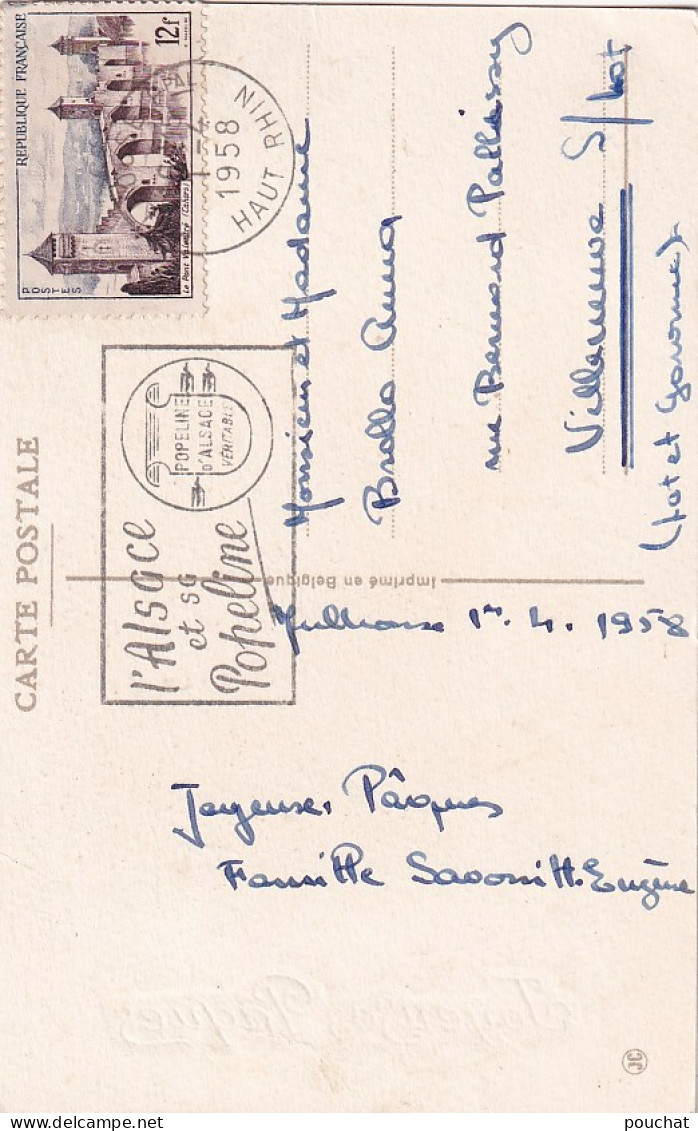 CARTE POSTALE
REPUBLIQUE FRANÇAISE
12f
POSTES
Le Pont Valentré (Cahors)
PAL
1-4
1958
HAUT RHIN
POPELINE
D'ALSACE
VÉRITABLE
l'Alsace
et sa
Popeline
Monsieur et Madame
Brolla Anna
rue Bernard Pallissy
Villeneuve S/Lot
(Lot et Garonne)
Imprimé en Belgique
Mulhouse 1er. 4. 1958
Joyeuses Pâques
Famille Eugène
Joyeuses Pâques
JC
pouchat